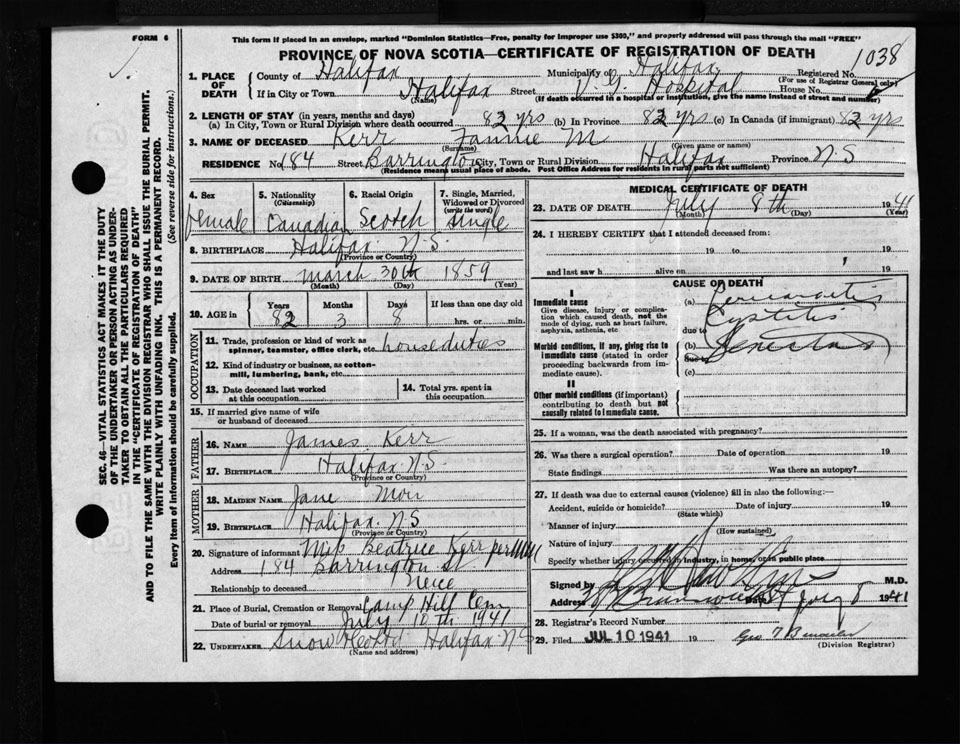 FORM 6
This form if placed in an envelope, marked "Dominion Statistics—Free, penalty for improper use $300," and properly addressed will pass through the mail "FREE"
PROVINCE OF NOVA SCOTIA—CERTIFICATE OF REGISTRATION OF DEATH
1038
1. PLACE OF DEATH
County of Halifax Municipality of Halifax Registered No.
(For use of Registrar General only)
If in City or Town Halifax Street V. G. Hospital House No.
(Name) (If death occurred in a hospital or institution, give the name instead of street and number)
2. LENGTH OF STAY (in years, months and days)
(a) In City, Town or Rural Division where death occurred 82 yrs (b) In Province 82 yrs (c) In Canada (if immigrant) 82 yrs
3. NAME OF DECEASED Kerr Fannie M
(Surname) (Given name or names)
RESIDENCE No. 184 Street Barrington City, Town or Rural Division Halifax Province N S
(Residence means usual place of abode. Post Office Address for residents in rural parts not sufficient)
4. Sex female
5. Nationality (Citizenship) Canadian
6. Racial Origin Scotch
7. Single, Married, Widowed or Divorced (write the word) Single
8. BIRTHPLACE Halifax N.S.
(Province or Country)
9. DATE OF BIRTH March 30th 1859
(Month) (Day) (Year)
10. AGE in Years 82 Months 3 Days 8 If less than one day old hrs. or min.
OCCUPATION
11. Trade, profession or kind of work as spinner, teamster, office clerk, etc. house duties
12. Kind of industry or business, as cotton-mill, lumbering, bank, etc.
13. Date deceased last worked at this occupation
14. Total yrs. spent in this occupation
15. If married give name of wife or husband of deceased
FATHER
16. NAME James Kerr
17. BIRTHPLACE Halifax N.S.
(Province or Country)
MOTHER
18. MAIDEN NAME Jane
19. BIRTHPLACE Halifax N.S
(Province or Country)
20. Signature of informant Miss Beatrice Kerr per
Address 184 Barrington St
Relationship to deceased neice
21. Place of Burial, Cremation or Removal Camp Hill Cem
Date of burial or removal July 10th 1941
22. UNDERTAKER Snow & Co Ltd Halifax N.S
(Name and address)
MEDICAL CERTIFICATE OF DEATH
23. DATE OF DEATH July 8th 1941
(Month) (Day) (Year)
24. I HEREBY CERTIFY that I attended deceased from:
19 to 19
and last saw h alive on 19
CAUSE OF DEATH
I
Immediate cause
Give disease, injury or complication which caused death, not the mode of dying, such as heart failure, asphyxia, asthenia, etc
(a)
Cystitis
due to
Morbid conditions, if any, giving rise to immediate cause (stated in order proceeding backwards from immediate cause).
(b)
due to
(c)
II
Other morbid conditions (if important) contributing to death but not causally related to immediate cause.
25. If a woman, was the death associated with pregnancy?
26. Was there a surgical operation? Date of operation 19
State findings Was there an autopsy?
27. If death was due to external causes (violence) fill in also the following:—
Accident, suicide or homicide? Date of injury 19
(State which)
Manner of injury
(How sustained)
Nature of injury
Specify whether injury occurred in industry, in home, or in public place
Signed by M.D.
Address Date July 8 1941
28. Registrar's Record Number
29. Filed JUL 10 1941 19
(Division Registrar)
SEC. 46—VITAL STATISTICS ACT MAKES IT THE DUTY
OF THE UNDERTAKER OR PERSON ACTING AS UNDER-
TAKER TO OBTAIN ALL THE PARTICULARS REQUIRED
IN THE "CERTIFICATE OF REGISTRATION OF DEATH"
AND TO FILE THE SAME WITH THE DIVISION REGISTRAR WHO SHALL ISSUE THE BURIAL PERMIT.
WRITE PLAINLY WITH UNFADING INK. THIS IS A PERMANENT RECORD.
Every item of information should be carefully supplied. (See reverse side for instructions.)